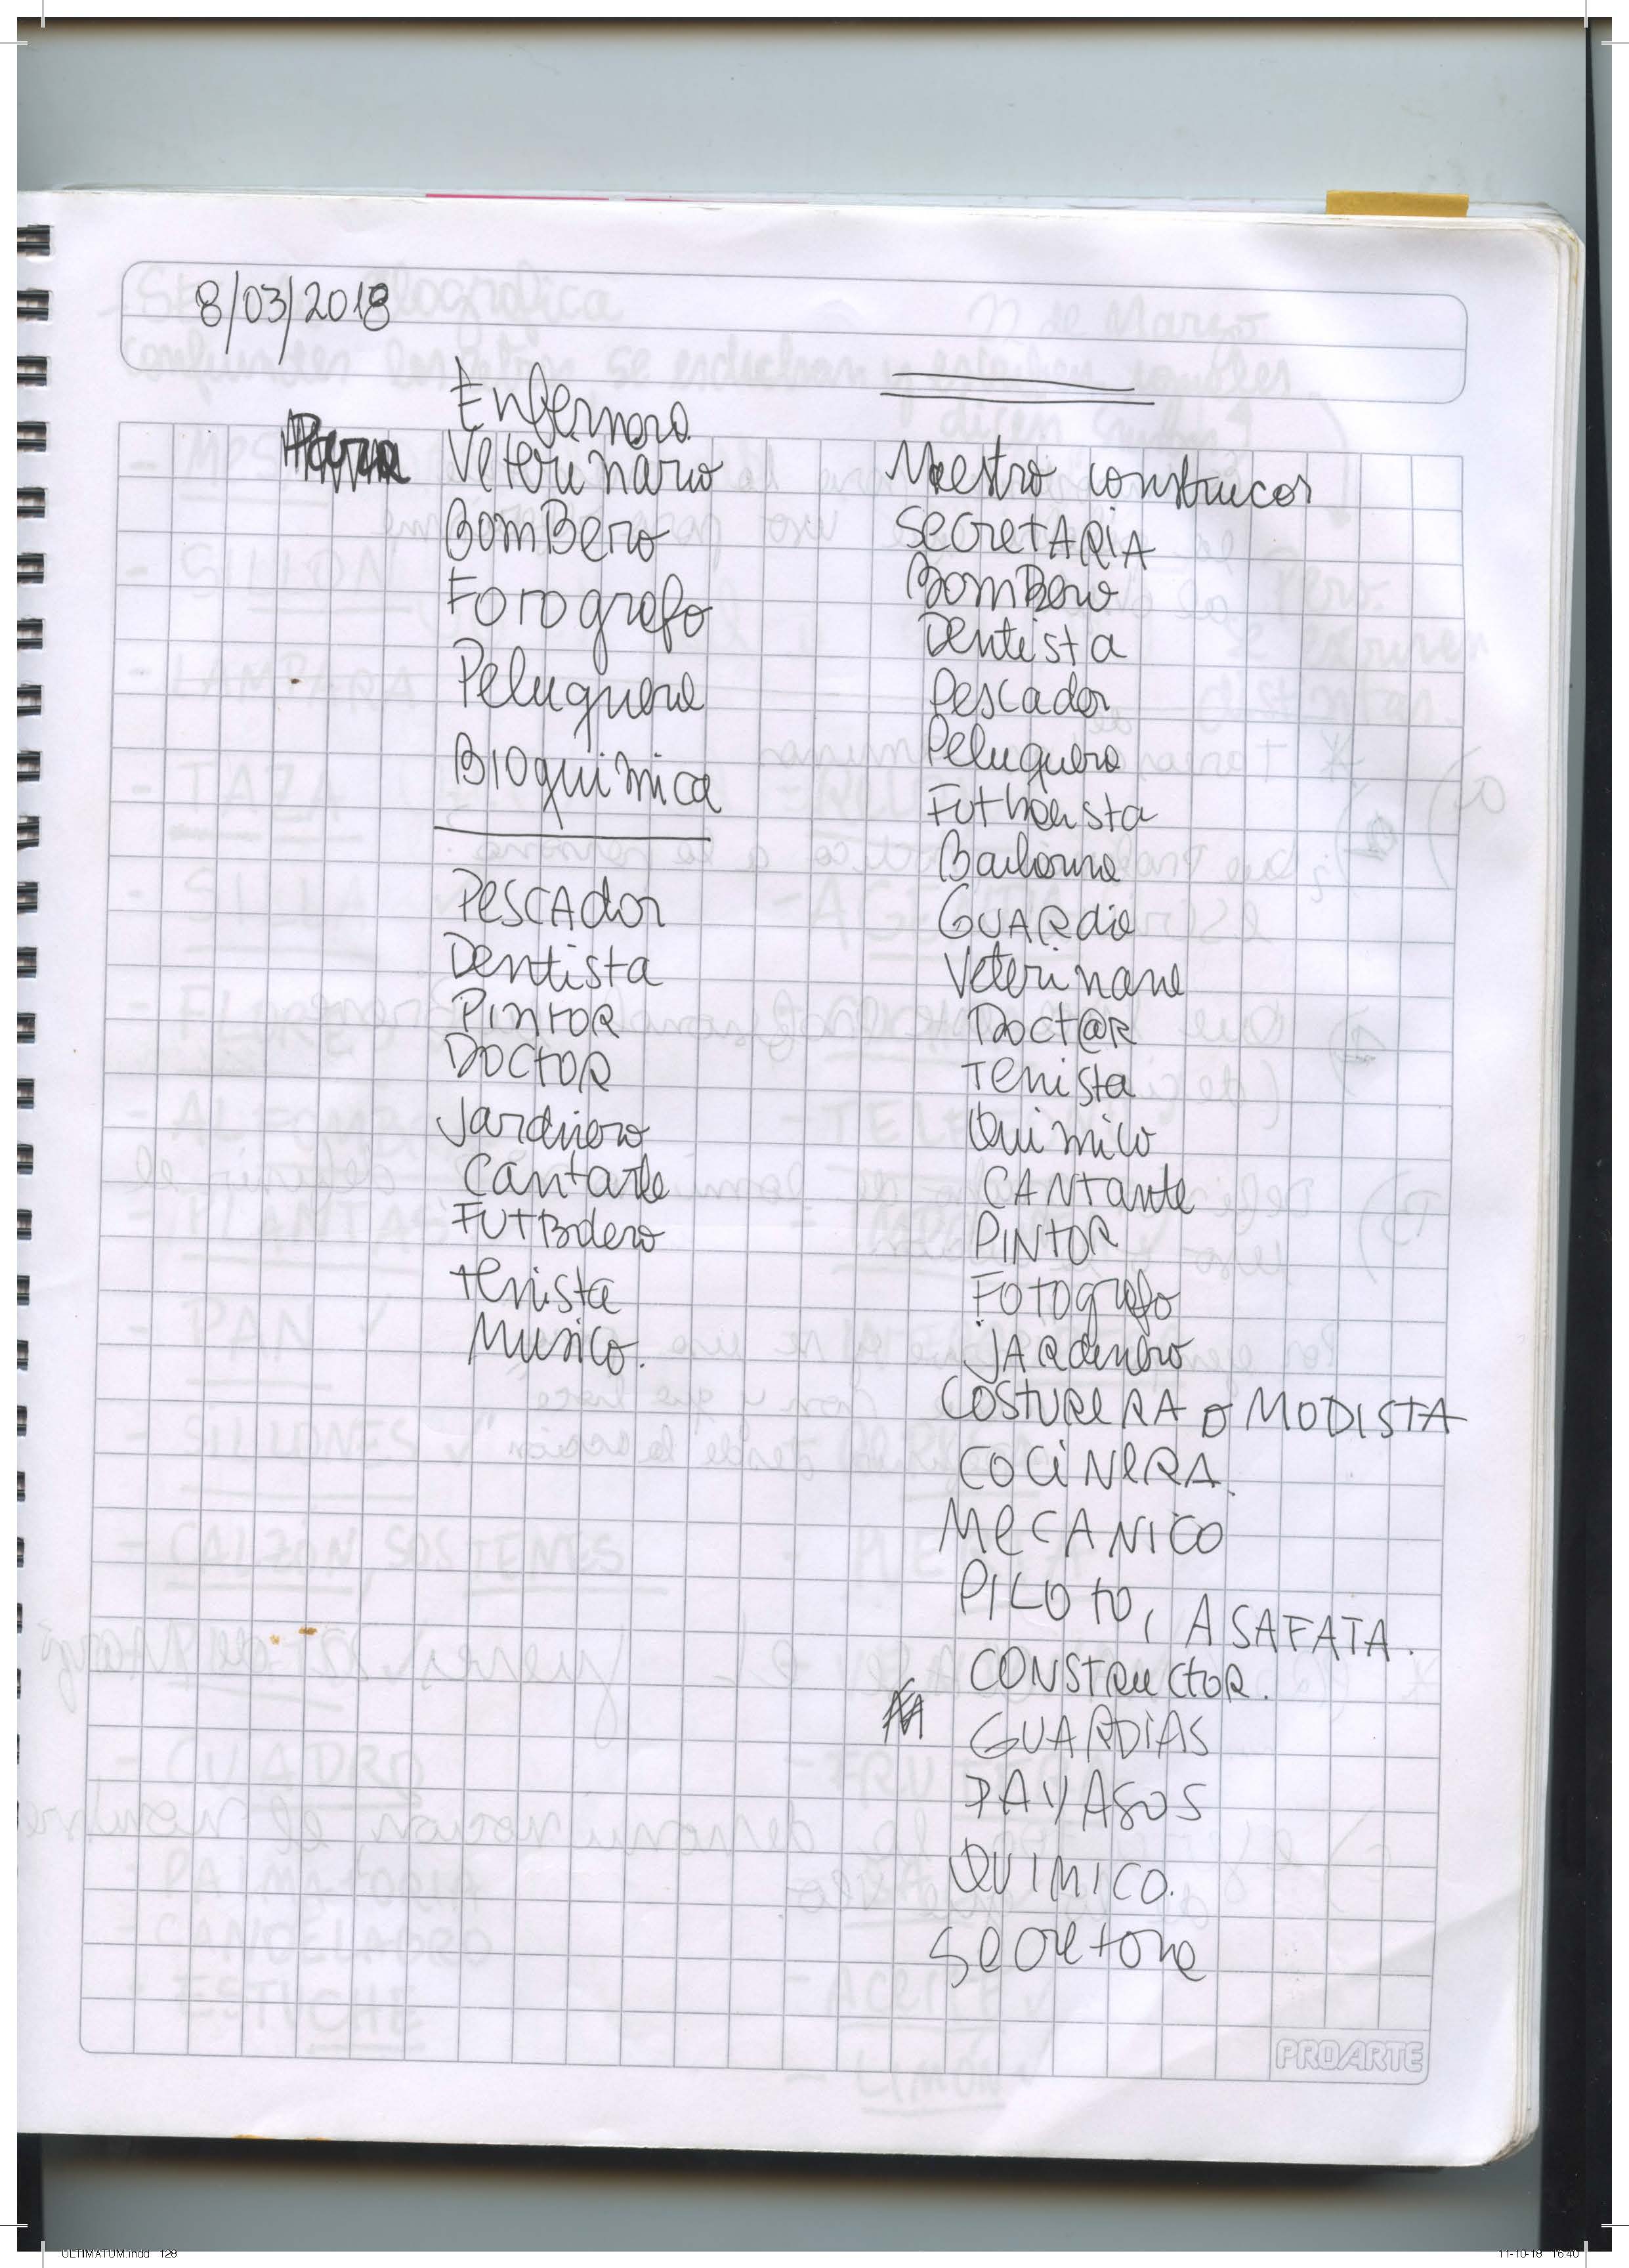 8/03/2018
Enfermera
Veterinario
BomBero
Forografo
Peluquera
BIOquimica
PESCAdor
Dentista
PINTOR
DOCTOR
Jardinero
Cantante
FUTBolero
tenista
Musico.
Maestro construcor
SecretARiA
BomBero
Dentista
Pescador
Peluquero
Bailarina
GUARdia
Veterinaria
Doct@R
Tenista
Quimico
CANtante
PINTOR
Fotografo
jARdinero
COSTURERA o MODISTA
COCiNERA.
MECANICO
PILOTO, ASAFATA.
CONSTRuCtOR.
GUARDIAS
PAYASOS
QUIMICO.
Secretaria
PROARTE
ULTIMATUM.indd 128
11-10-18 16:40